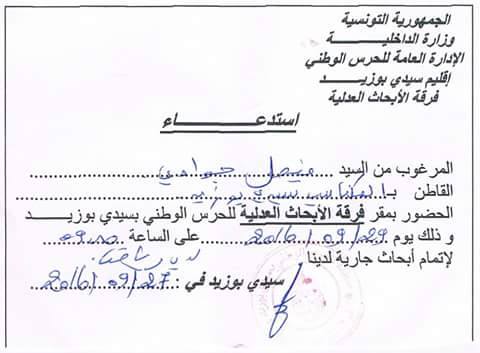 الجمهورية التونسية
وزارة الداخليـــــــة
الإدارة العامة للحرس الوطني
إقليم سيدي بوزيـــد
فرقة الأبحاث العدلية
استدعـــــــــاء
المرغوب من السيد فيصل جـ
القاطن بـ سيدي بوزيد
الحضور بمقر فرقة الأبحاث العدلية للحرس الوطني بسيدي بوزيــد
و ذلك يوم 2016/09/29 على الساعة 09
لإتمام أبحاث جارية لدينا
سيدي بوزيد في : 2016/09/27